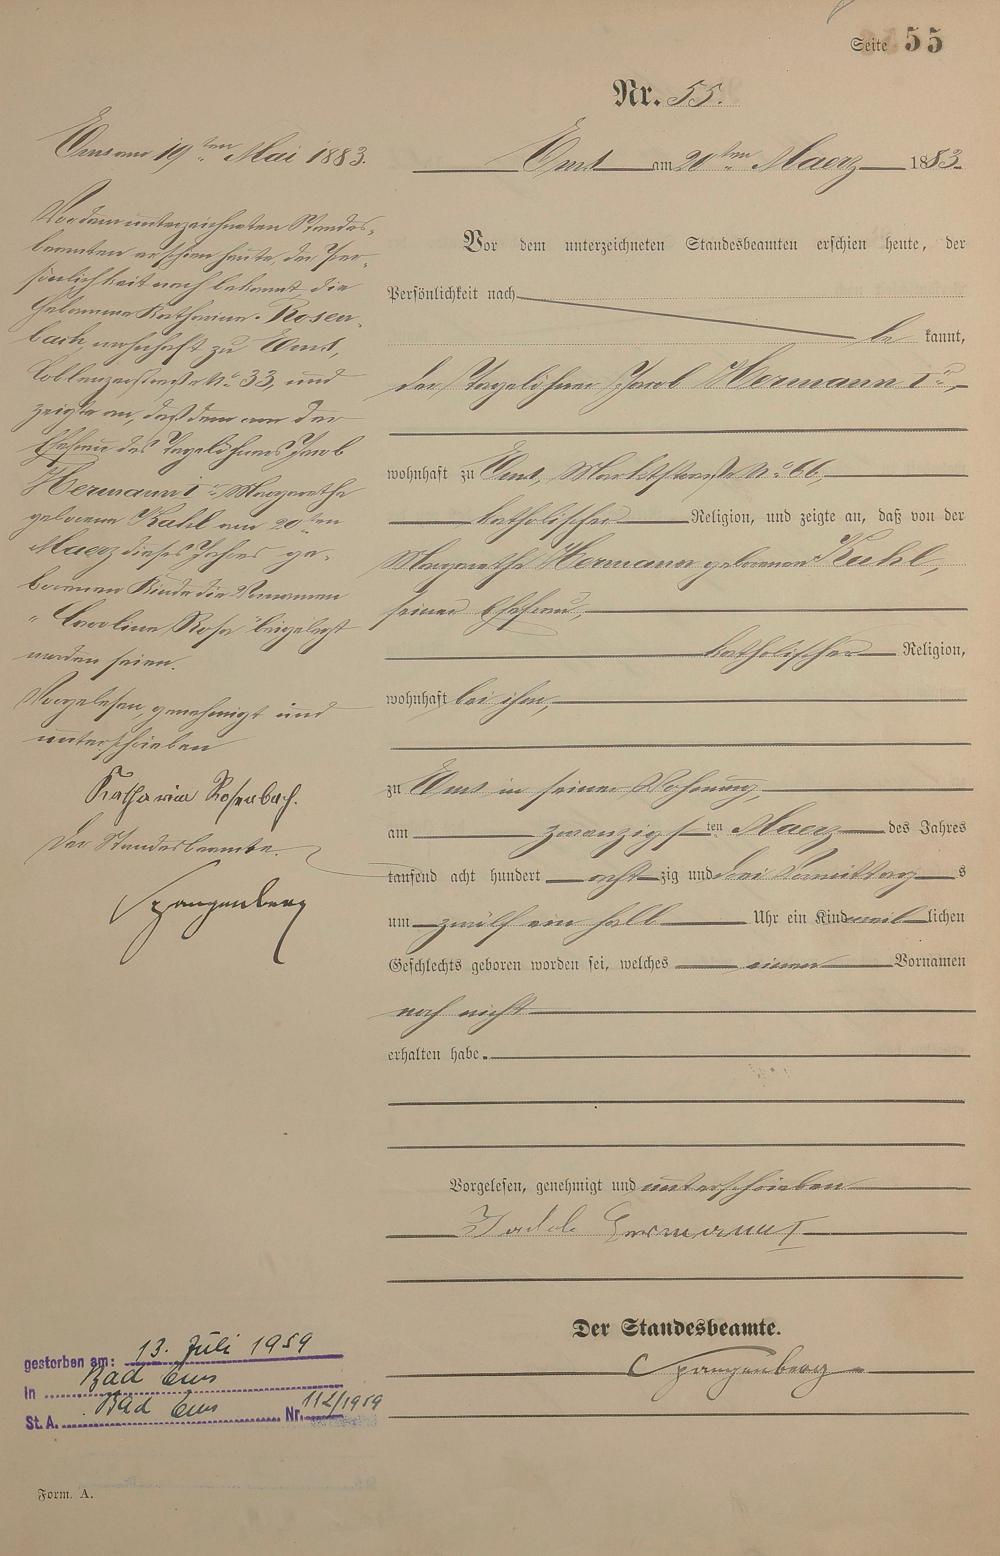 Seite 55
Nr. 55.
Ems am 20ten Maerz 1883.
Vor dem unterzeichneten Standesbeamten erschien heute, der
Persönlichkeit nach
be kannt,
der Tagelöhner Jacob Hermann Ir,
wohnhaft zu Ems, Marktstraße No 66,
katholischer Religion, und zeigte an, daß von der
Margarethe Hermann geborenen Kuhl,
seiner Ehefrau,
katholischer Religion,
wohnhaft bei ihm,
zu Ems in seiner Wohnung,
am zwanzigsten Maerz des Jahres
tausend acht hundert achtzig und drei Vormittags
um zwölf ein halb Uhr ein Kind weiblichen
Geschlechts geboren worden sei, welches einen Vornamen
noch nicht
erhalten habe.
Vorgelesen, genehmigt und unterschrieben
Jakob Hermann I
Der Standesbeamte.
Spangenberg
Ems am 19ten Mai 1883.
Vor dem unterzeichneten Standes-
beamten erschien heute, der Per-
sönlichkeit nach bekannt die
Hebamme Katharina Rosen-
bach, wohnhaft zu Ems,
Coblenzerstraße No 33, und
zeigte an, daß dem von der
Ehefrau des Tagelöhners Jacob
Hermann Ir Margarethe
geborene Kuhl am 20ten
Maerz dieses Jahres ge-
borenen Kinde die Vornamen
"Caroline Rosa" beigelegt
worden seien.
Vorgelesen, genehmigt und
unterschrieben
Katharina Rosenbach.
Der Standesbeamte.
Spangenberg
gestorben am: 13. Juli 1959
in Bad Ems
St. A. Bad Ems Nr. 112/1959
Form. A.